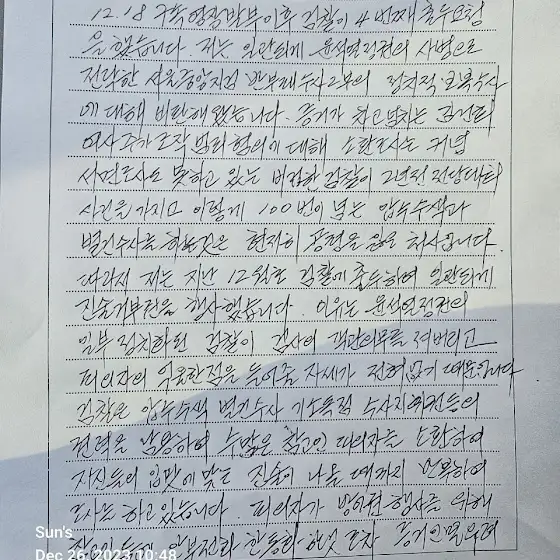 12.18 구속영장발부이후 검찰이 4번째 출두요청
을 했습니다. 저는 일관되게 윤석열정권의 사병으로
전락한 서울중앙지검 반부패수사2부의 정치적·보복수사
에 대해 비판해왔습니다. 증거가 차고 넘치는 김건희
여사 주가조작 범죄혐의에 대해 소환조사는 커녕
서면조사도 못하고 있는 비겁한 검찰이 2년전 전당대회
사건을 가지고 이렇게 100번이 넘는 압수수색과
별건수사를 하는것은 현저히 공정을 잃은 처사입니다.
따라서 저는 지난 12월초 검찰에 출두하여 일관되게
진술거부권을 행사했습니다. 이유는 윤석열정권의
일부 정치화된 검찰이 검사의 객관의무를 저버리고
피의자의 억울한점을 들어줄 자세가 전혀없기 때문입니다
검찰은 압수수색 별건수사 기소독점 수사지휘권등의
권력을 남용하여 수많은 참고인 피의자를 소환하여
자신들의 입맛에 맞는 진술이 나올 때까지 반복하여
조사를 하고있습니다 피의자가 방어권행사를 위해
전화 한통화 한것조차 증거인멸우려
Sun's
Dec 26, 2023 10:48